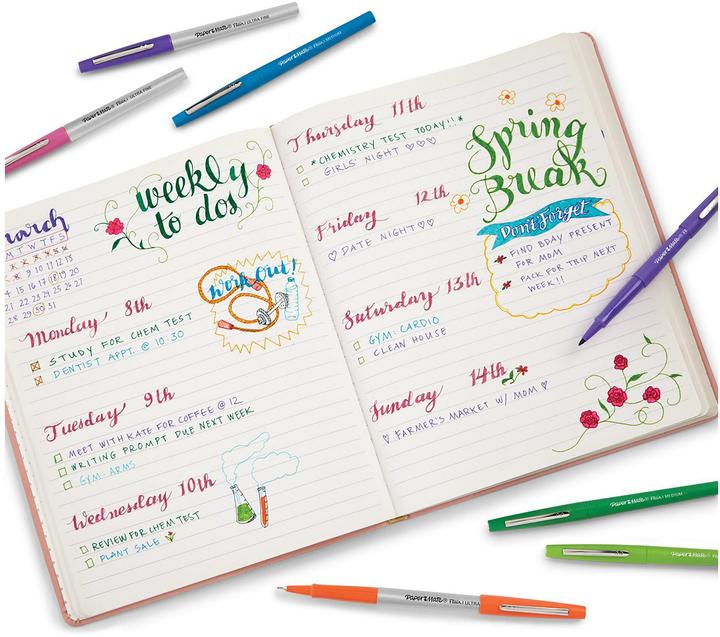 Paper:Mate® Flair. ULTRA FINE
Paper:Mate® Flair. MEDIUM
Paper:Mate® Flair. ULTRA FINE
weekly
to dos
march
M T W T F S
9 10 11 12 13
14 15 16 17 18 19 20
21 22 23 24 25 26 27
28 29 30 31
Work Out!
Monday 8th
STUDY FOR CHEM TEST
DENTIST APPT. @ 10:30
Tuesday 9th
MEET WITH KATE FOR COFFEE @ 12
WRITING PROMPT DUE NEXT WEEK
GYM: ARMS
Wednesday 10th
REVIEW FOR CHEM TEST
PLANT SALE
Thursday 11th
*CHEMISTRY TEST TODAY!!*
GIRLS' NIGHT ♡♡♡
Friday 12th
♡ DATE NIGHT ♡♡
Saturday 13th
GYM: CARDIO
CLEAN HOUSE
Sunday 14th
♡ FARMER'S MARKET W/ MOM ♡
Spring
Break
Don't Forget
FIND BDAY PRESENT
FOR MOM
PACK FOR TRIP NEXT
WEEK!!
Paper:Mate®
Paper:Mate® Flair. MEDIUM
Paper:Mate® Flair
Paper:Mate® Flair. ULTRA